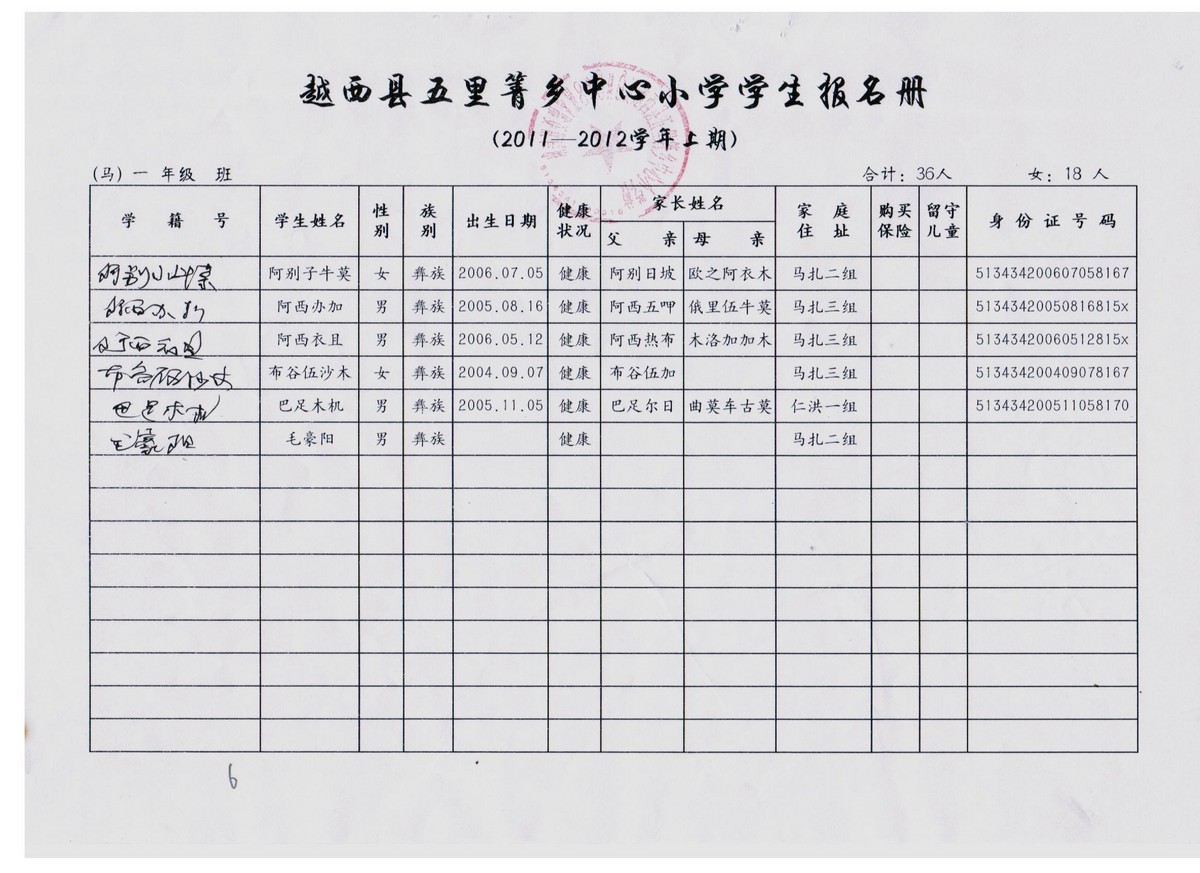 越西县五里箐乡中心小学学生报名册
(2011—2012学年上期)
(马) 一 年级 班 合计: 36人 女: 18 人
学 籍 号 学生姓名 性别 族别 出生日期 健康状况 家长姓名 父 亲 母 亲 家庭住址 购买保险 留守儿童 身份证号码
阿别子牛莫 女 彝族 2006.07.05 健康 阿别日坡 欧之阿衣木 马扎二组 513434200607058167
阿西办加 男 彝族 2005.08.16 健康 阿西五呷 俄里伍牛莫 马扎三组 51343420050816815x
阿西衣且 男 彝族 2006.05.12 健康 阿西热布 木洛加加木 马扎三组 51343420060512815x
布谷伍沙木 布谷伍沙木 女 彝族 2004.09.07 健康 布谷伍加 马扎三组 513434200409078167
巴足木机 巴足木机 男 彝族 2005.11.05 健康 巴足尔日 曲莫车古莫 仁洪一组 513434200511058170
毛豪阳 毛豪阳 男 彝族 健康 马扎二组
6